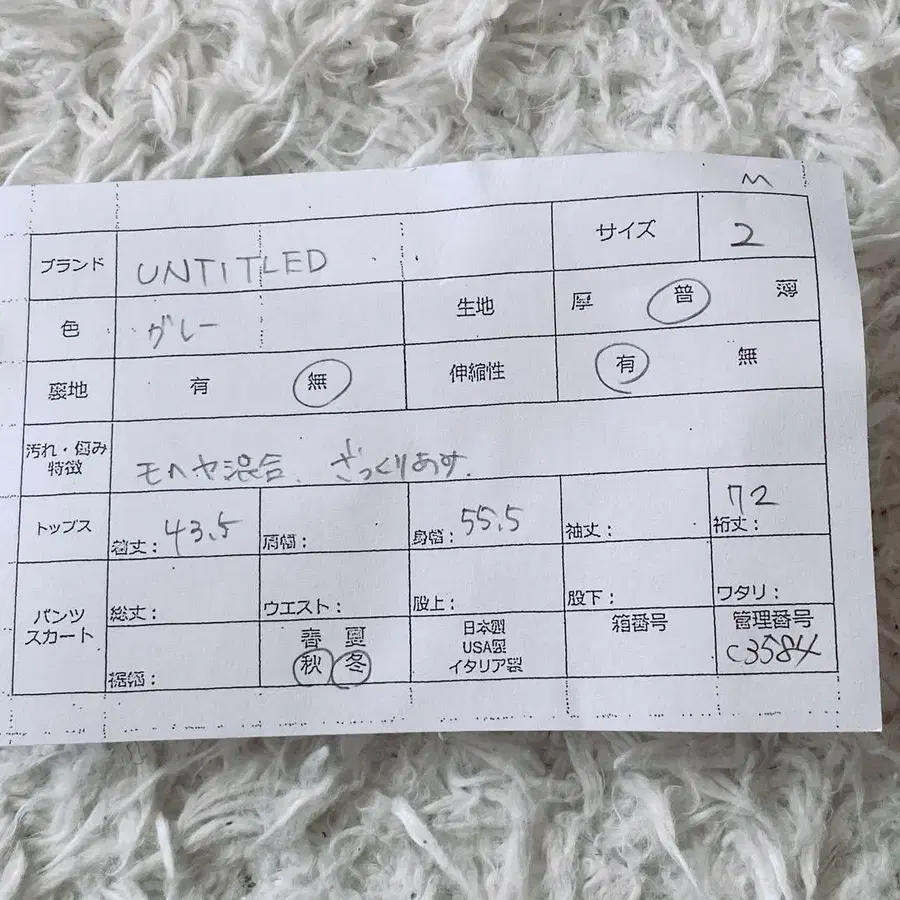 M
ブランド UNTITLED サイズ 2
色 グレー 生地 厚 普 薄
裏地 有 無 伸縮性 有 無
汚れ・傷み
特徴 モヘヤ混合、ざっくりあす.
トップス 着丈: 43.5 肩幅: 身幅: 55.5 袖丈: 裄丈: 72
パンツ
スカート 総丈: ウエスト: 股上: 股下: ワタリ:
裾幅: 春 夏
秋 冬
日本製
USA製
イタリア製
箱番号
管理番号
C3584